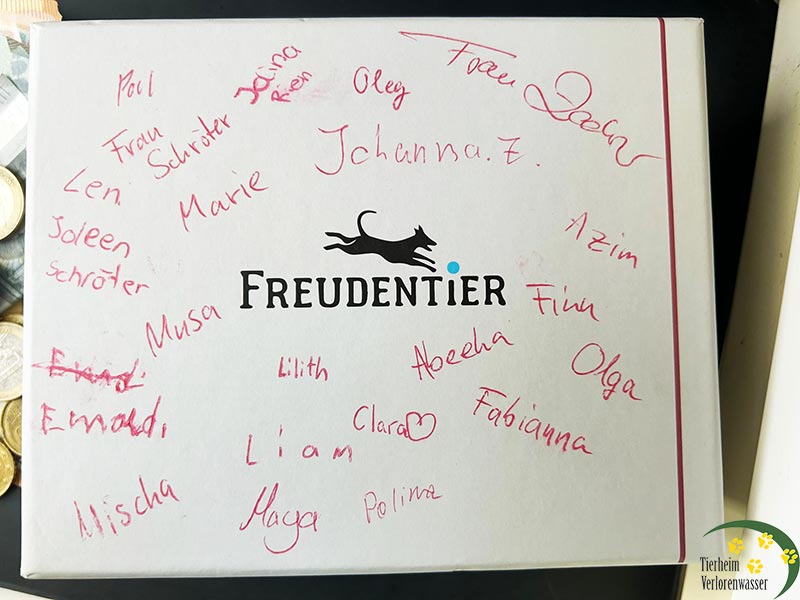 Paul
Jolina
Rien
Oleg
Frau
Frau
Schröter
Johanna. Z.
Len
Marie
Joleen
Schröter
Azim
FREUDENTIER
Finn
Musa
Lilith
Abeeha
Olga
Clara
Fabianna
Liam
Mischa
Maya
Polina
Tierheim
Verlorenwasser